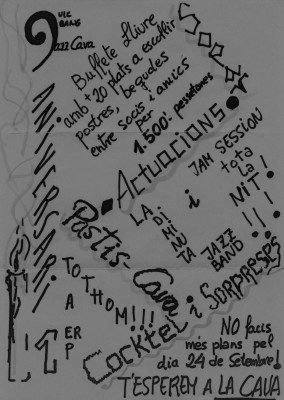 VIC
DANS
Jazz Cava
ANIVERSARI
SOPAR
Buffete Lliure
amb +20 plats a escollir
postres, begudes
entre socis i amics
per
1.500'- pessetones
ACTUACIONS:
LA
DI
MI
NU
TA
JAZZ
BAND
i
JAM SESSION
tota
LA
NIT!
!!!
Pastis-Cava
Cocktel i SORPRESES
1ER
PA
TOTHOM!!!!
NO facis
més plans pel
dia 24 de Setembre!
T'ESPEREM A LA CAVA